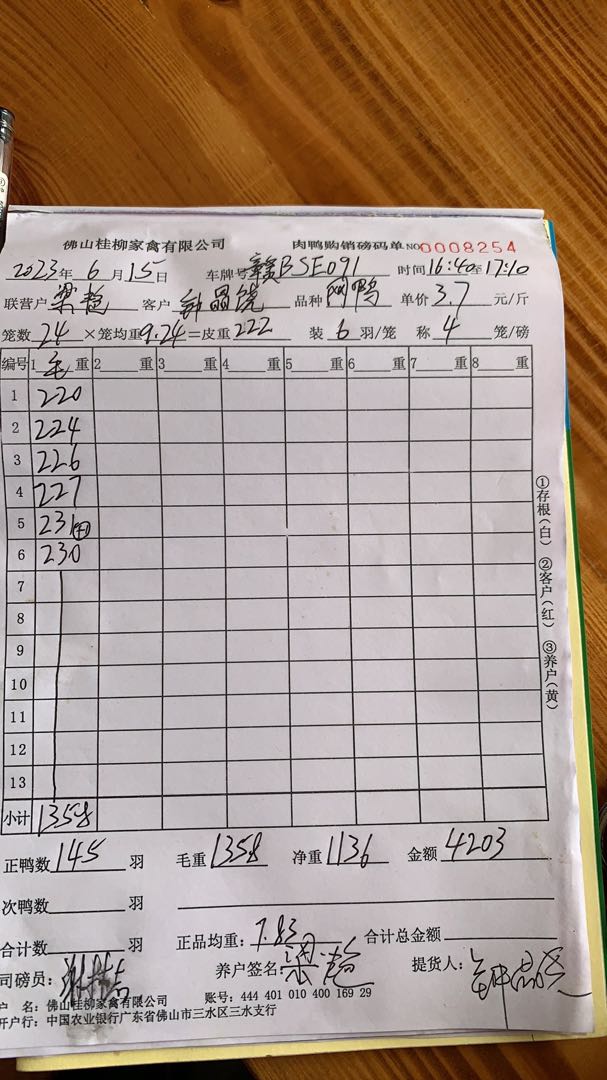 佛山桂柳家禽有限公司 肉鸭购销磅码单 NO 0008254
2023年 6月15日 车牌号 赣BSE091 时间16:40至17:10
联营户 梁艳 客户 品种 肉鸭 单价 3.7 元/斤
笼数 24 ×笼均重9.24=皮重222 装 6 羽/笼 称 4 笼/磅
编号 1 毛 重 2 重 3 重 4 重 5 重 6 重 7 重 8 重
1 220
2 224
3 226
4 227
5 231
6 230
7
8
9
10
11
12
13
小计 1358
正鸭数 145 羽 毛重 1358 净重 1136 金额 4203
次鸭数 羽
合计数 羽 正品均重: 7.83 合计总金额
司磅员: 养户签名: 梁艳 提货人:
户 名: 佛山桂柳家禽有限公司 账号: 444 401 010 400 169 29
开户行: 中国农业银行广东省佛山市三水区三水支行
①存根(白) ②客户(红) ③养户(黄)